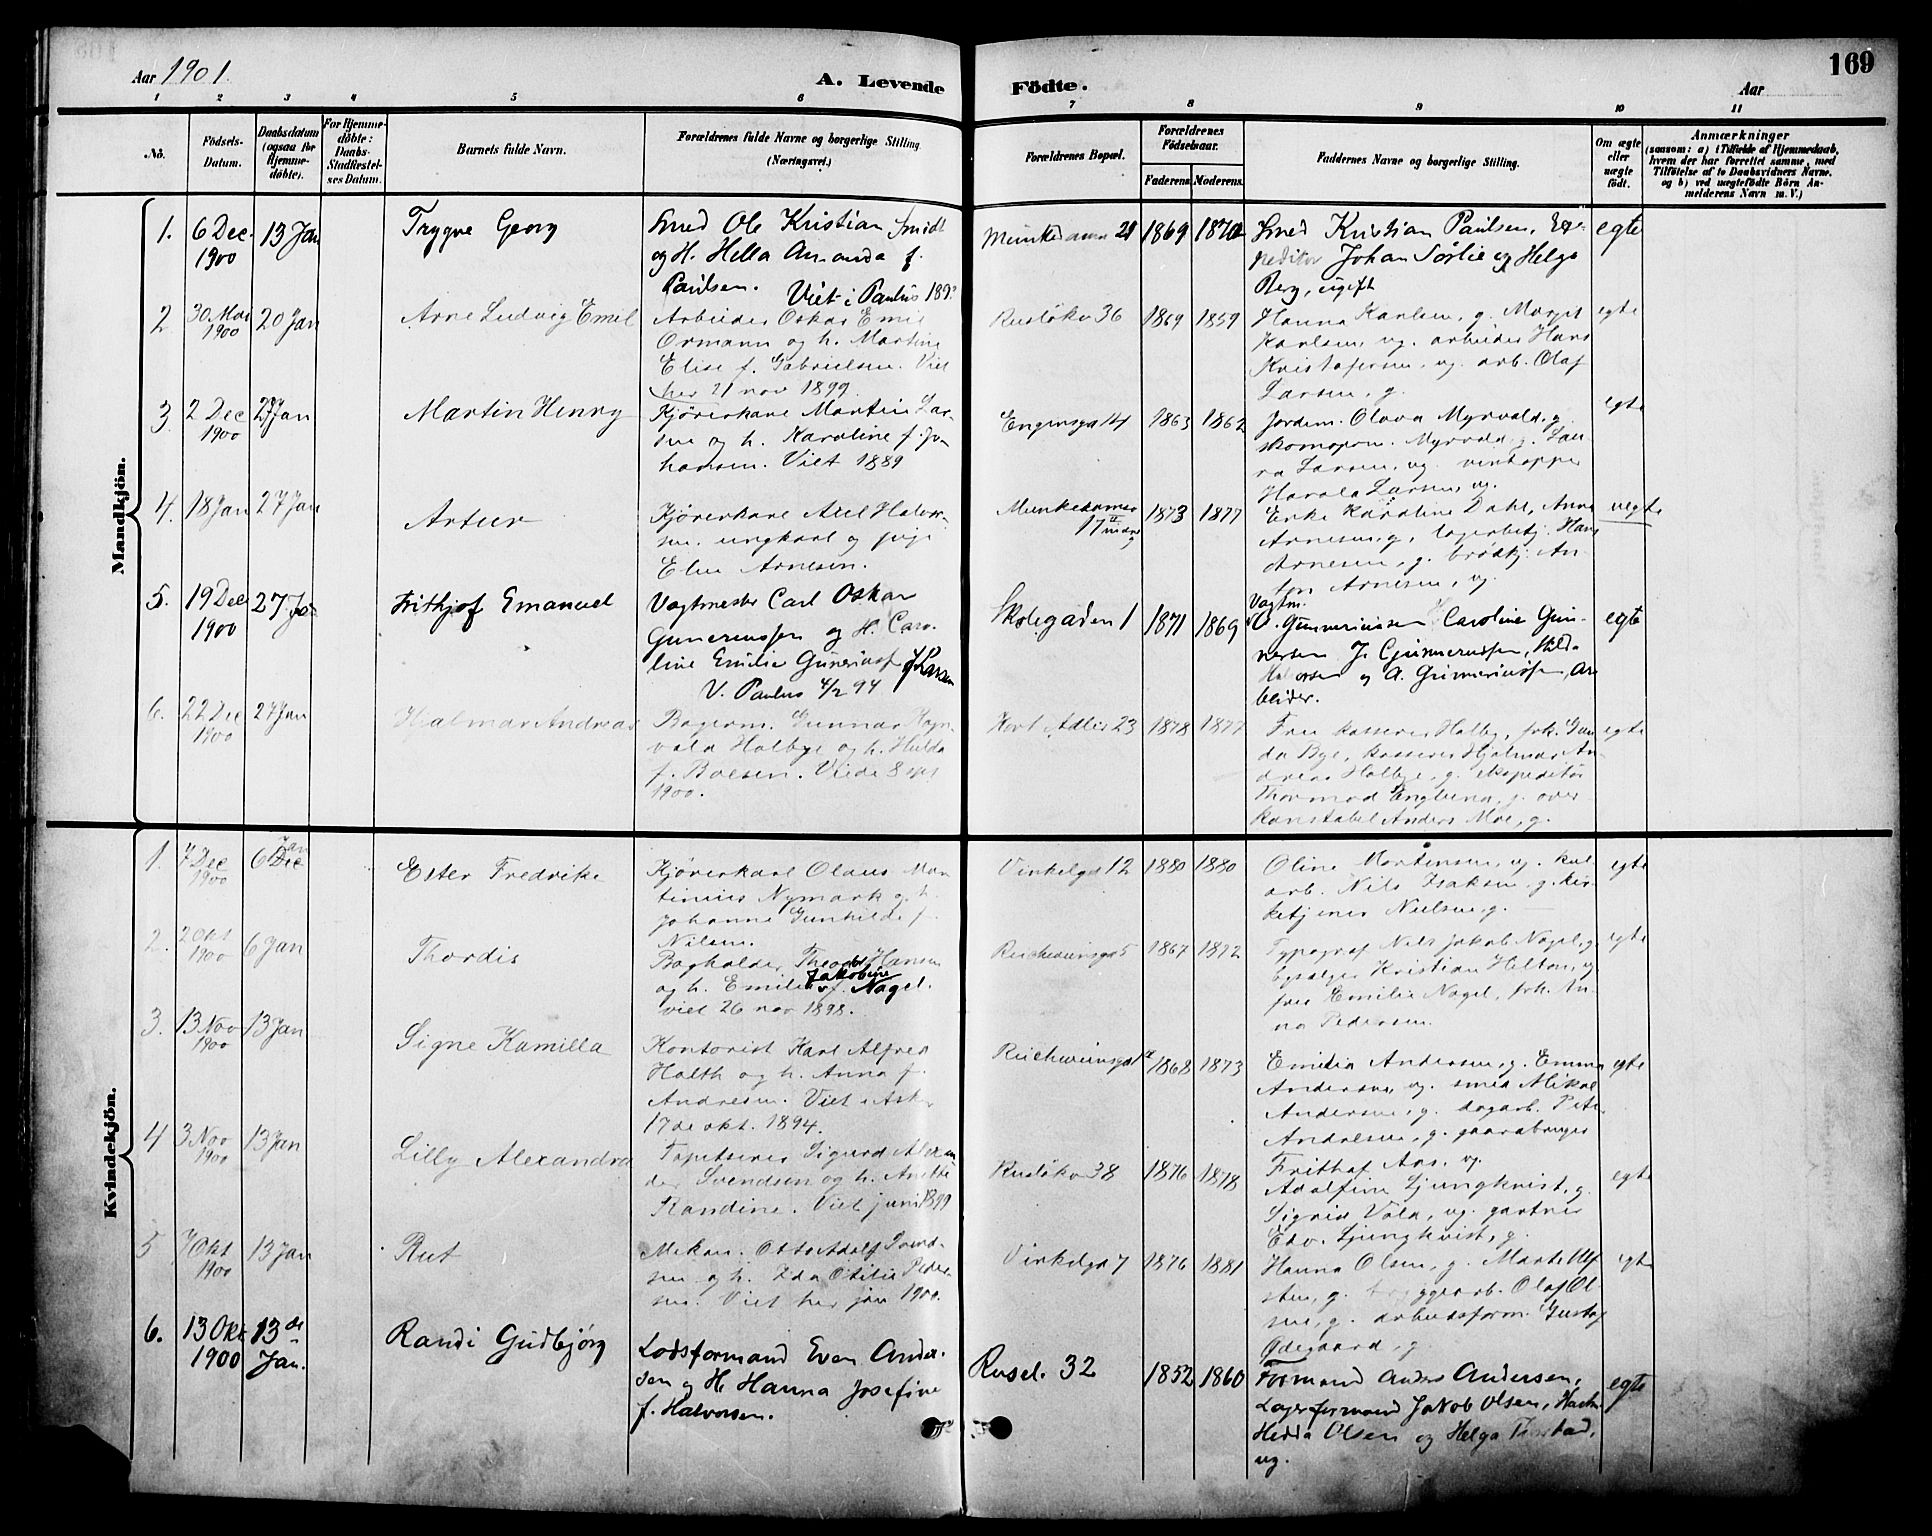 169
Aar 1901.
A. Levende Födte.
Aar
1 2 3 4 5 6 7 8 9 10 11
No.
Födsels-Datum.
Daabsdatum (ogsaa for Hjemme-döbte).
For Hjemme-döbte: Daabs-Stadfæstel-ses Datum.
Barnets fulde Navn.
Forældrenes fulde Navne og borgerlige Stilling. (Næringsvei.)
Forældrenes Bopæl.
Forældrenes Födselsaar.
Faderens. Moderens.
Faddernes Navne og borgerlige Stilling.
Om ægte eller uægte födt.
Anmærkninger
(saasom: a) i Tilfælde af Hjemmedaab,
hvem der har forrettet samme, med
Tilföielse af to Daabsvidners Navne,
og b) ved uægtefödte Börn An-
melderens Navn m. V.)
Mandkjön.
1. 6 Dec. 1900 13 Jan
Trygve Georg
Smed Ole Kristian Smidt
og H. Hella Amanda f.
Paulsen. Viet i Paulus
Munkedamsv 21 1869 1870
Smed Kristian Paulsen, Ex-
peditor Johan Sørlie og Helga
Berg, ugift
egte
2. 30 1900 20 Jan
Arne Ludvig Emil
Arbeider Oskar Emil
Ormann og h. Martine
Elise f. Gabrielsen. Viet
her 21 nov 1899
Rusløkv 36 1869 1859
Hanna Karlsen, g. Margit
Karlsen, ug. arbeider Hans
Kristofersen, ug. arb. Olaf
Larsen, g.
egte
3. 2 Dec 1900 27 Jan
Martin Henry
Kjørerkarl Martin Lar-
sen og h. Karoline f. Jo-
hansen. Viet 1889
Engensgd 14 1863 1862
Jordem. Olava Myrvold, g.
skomagerm. Myrvold, g. Lau-
ra Larsen, ug. vintapper
Harald Larsen, ug.
egte
4. 18 Jan 27 Jan
Artur
Kjørerkarl Axel Halvor-
sen. ungkarl og pige
Elise Arnesen.
Munkedamsv 17 1873 1877
Enke Karoline Dahl, Anna
Arnesen, g, lagerbetj. Hans
Arnesen, g. brødkj. An-
ton Arnesen, ug.
uegte
5. 19 Dec 1900 27 Jan
Frithjof Emanuel
Vagtmester Carl Oskar
Gunerussen og H. Caro-
line Emilie f. Larsen
V. Paulus 4/2 94
Skolegaden 1 1871 1869
Vagtm.
Gunneriussen Caroline Gun-
nersen J. Gunnerussen, Hilda
Halvorsen og A. Gunneriussen, Ar-
beider.
egte
6. 22 Dec 1900 27 Jan
Hjalmar Andreas
Bagerm. Gunnar Ragn-
vald Holbye og h. Hulda
f. Boesen. Viede 8 sept
1900.
Kort Adler 23 1878 1877
Fru kasserer Holby, frk. Gun-
da Bye, kasserer Hjalmar An-
dreas Holbye, g. ekspeditør
Thormod Englund, g. over-
konstabel Anders Moe, g.
egte
Kvindekjön.
1. 7 Dec 1900 6 Jan
Ester Fredrike
Kjørerkarl Olaus Mar-
tinius Nymark og h.
Johanne Gunhilde f.
Nilsen.
Vinkelgd 12 1880 1880
Oline Mortensen, ug. kul-
arb. Nils Isaksen, g. kir-
ketjener Nielsen, g.
egte
2. 2 Okt 1900 6 Jan
Thordis
Bogholder Theodor Hansen
og h. Emilie Jakobine f. Nagel.
viet 26 nov 1898.
Reichweinsgd 5 1867 1872
Typograf Nils Jakob Nagel, g.
Kristian Helton, g
fru Emilie Nagel, frk. An-
na Pedersen.
egte
3. 13 Nov 1900 13 Jan
Signe Kamilla
Kontorist Karl Alfred
Holth og h. Anna f.
Andresen. Viet i Asker
17de okt. 1894.
Reichweinsgd 1 1868 1873
Emilia Andersen, g. Emma
Andersen, ug. smed Mikal
Andersen, g. dagarb. Peter
Andresen, g. gaardbruger
Frithof Aas, ug.
egte
4 3 Nov 1900 13 Jan
Lilly Alexandra
Tapetserer Sigurd Alexan-
der Svendsen og h. Anette
Randine. Viet juni 1899
Rusløkv 38 1876 1878
Adolfine Ljungkvist, g.
Sigrid Vold, ug. gartner
Edv. Ljungkvist, g.
egte
5 7 Okt 1900 13 Jan
Rut
Mekan. Otto Adolf Svend-
sen og h. Ida Otilie Peder-
sen. Viet her jan 1900.
Vinkelgd 7 1876 1881
Hanna Olsen, g. Marte Ulf-
sten, g. bryggearb. Olaf Ol-
sen, g. arbeidsform. Gustaf
Ødegaard, g
egte
6. 13 Okt 1900 13de Jan.
Randi Gudbjørg
Lodsformand Even Ander-
sen og H. Hanna Josefine
f. Halvorsen.
Rusel. 32 1852 1860
Formand Anders Andersen,
Lagerformand Jakob Olsen,
Hedda Olsen og Helga
ug.
egte